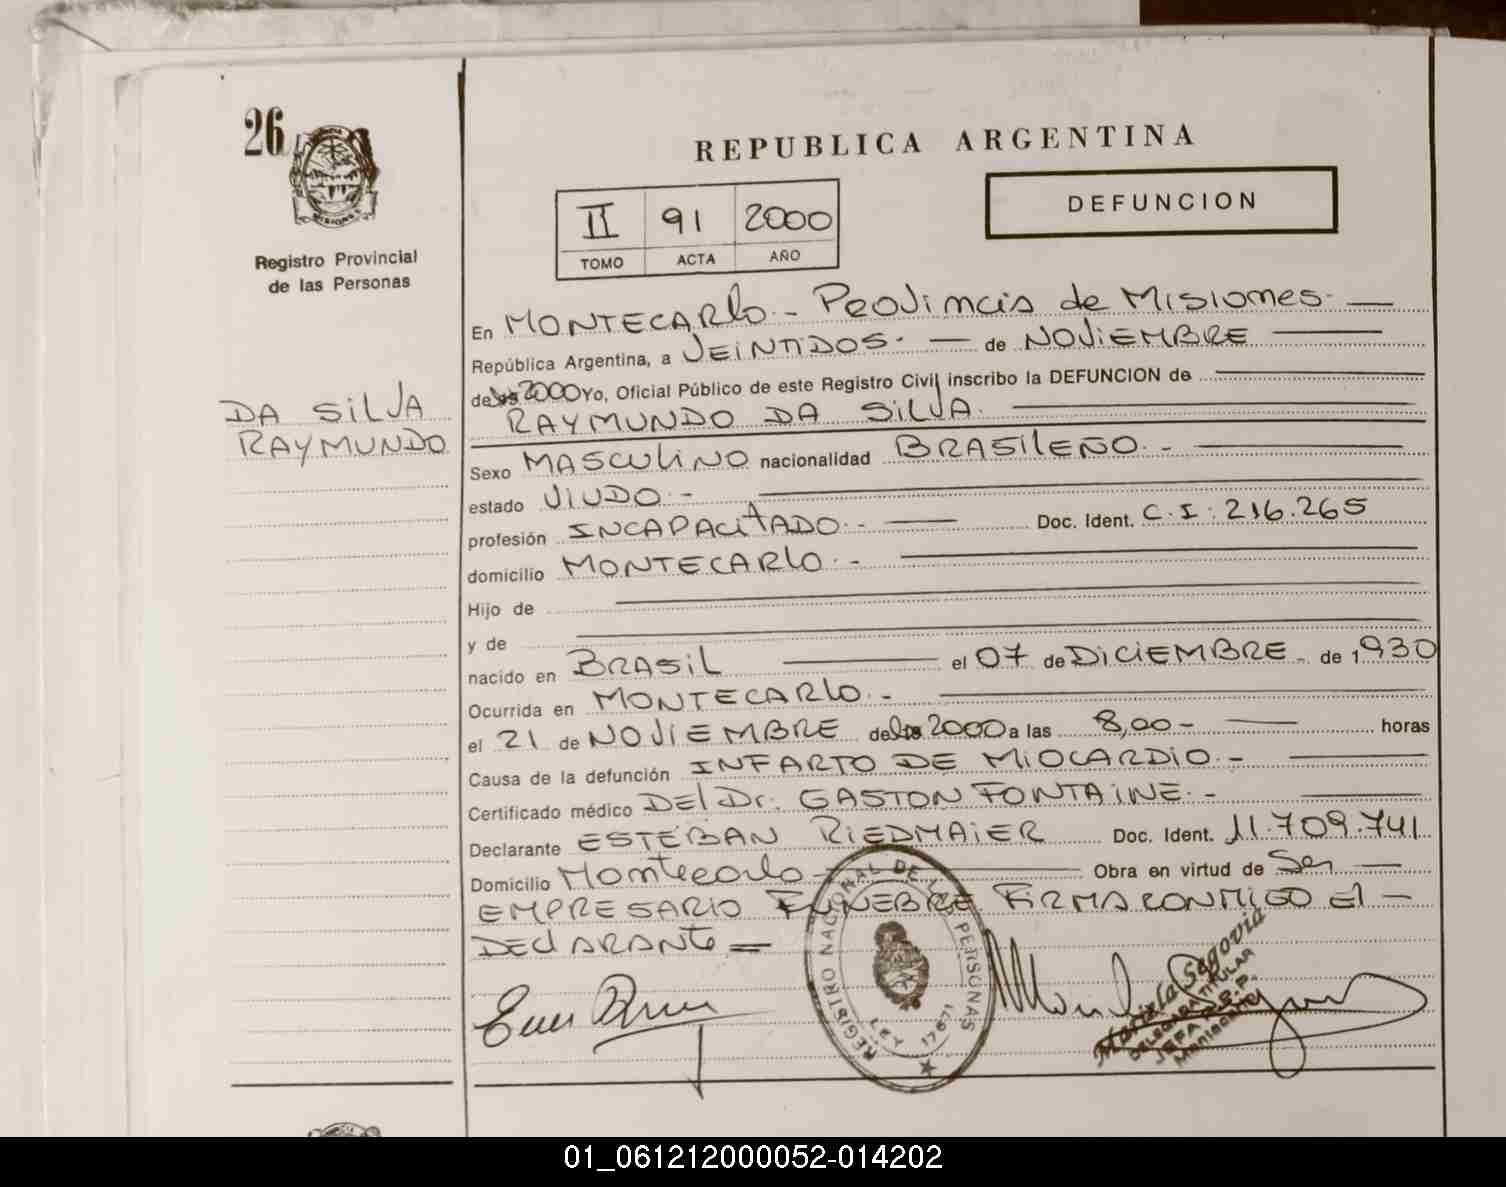 26
MISIONES
Registro Provincial
de las Personas
DA SILVA
RAYMUNDO
REPUBLICA ARGENTINA
II 91 2000
TOMO ACTA AÑO
DEFUNCION
En MONTECARLO.- Provincia de Misiones.-
República Argentina, a VEINTIDOS.- de NOVIEMBRE
del 2000 Yo, Oficial Público de este Registro Civil inscribo la DEFUNCION de
RAYMUNDO DA SILVA.
Sexo MASCULINO nacionalidad BRASILEÑO.-
estado VIUDO.-
profesión INCAPACITADO.- Doc. Ident. C.I: 216.265
domicilio MONTECARLO.-
Hijo de
y de
nacido en BRASIL el 07 de DICIEMBRE.- de 1930
Ocurrida en MONTECARLO.-
el 21 de NOVIEMBRE del 2000 a las 8,00- horas
Causa de la defunción INFARTO DE MIOCARDIO.-
Certificado médico DEL Dr. GASTON FONTAINE.-
Declarante ESTEBAN RIEDMAIER Doc. Ident. 11.709.741
Domicilio Montecarlo- Obra en virtud de Ser
EMPRESARIO FUNEBRE. FIRMA CONMIGO El -
DEClARANTE =
REGISTRO NACIONAL DE LAS PERSONAS
LEY 17671
Mariela Segovia
DELEGADA TITULAR
JEFA R.P.P.
01_061212000052-014202